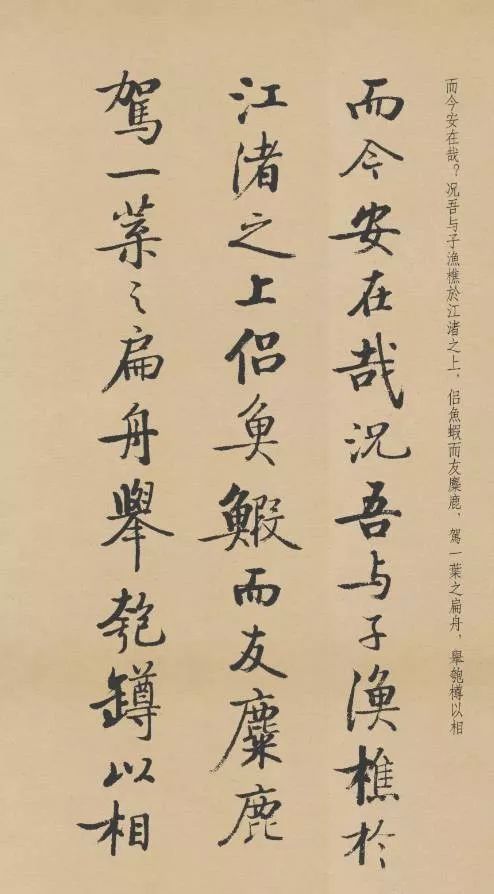 而今安在哉？况吾与子漁樵於江渚之上，侣魚鰕而友麋鹿，駕一葉之扁舟，舉匏樽以相
而今安在哉况吾与子漁樵於
江渚之上侣魚鰕而友麋鹿
駕一葉之扁舟舉匏鐏以相